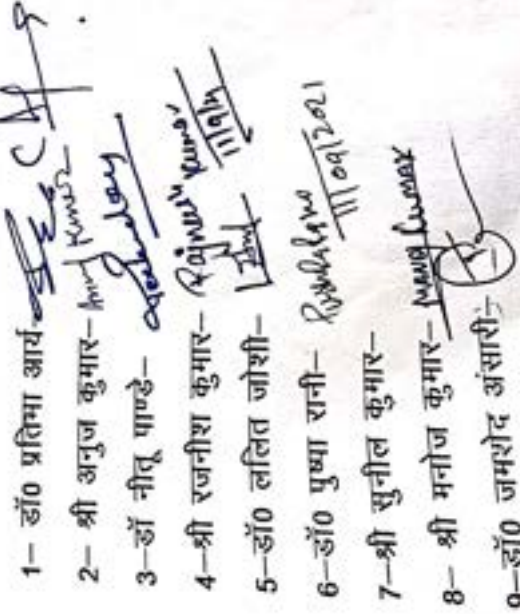 1– डॉ0 प्रतिमा आर्य-
2– श्री अनुज कुमार– Anuj Kumar
3–डॉ नीतू पाण्डे–
4–श्री रजनीश कुमार– Rajneesh Kumar
5–डॉ0 ललित जोशी– 11/9/21
6–डॉ0 पुष्पा रानी– 11/09/2021
7–श्री सुनील कुमार–
8– श्री मनोज कुमार– Manoj Kumar
9–डॉ0 जमशेद अंसारी–